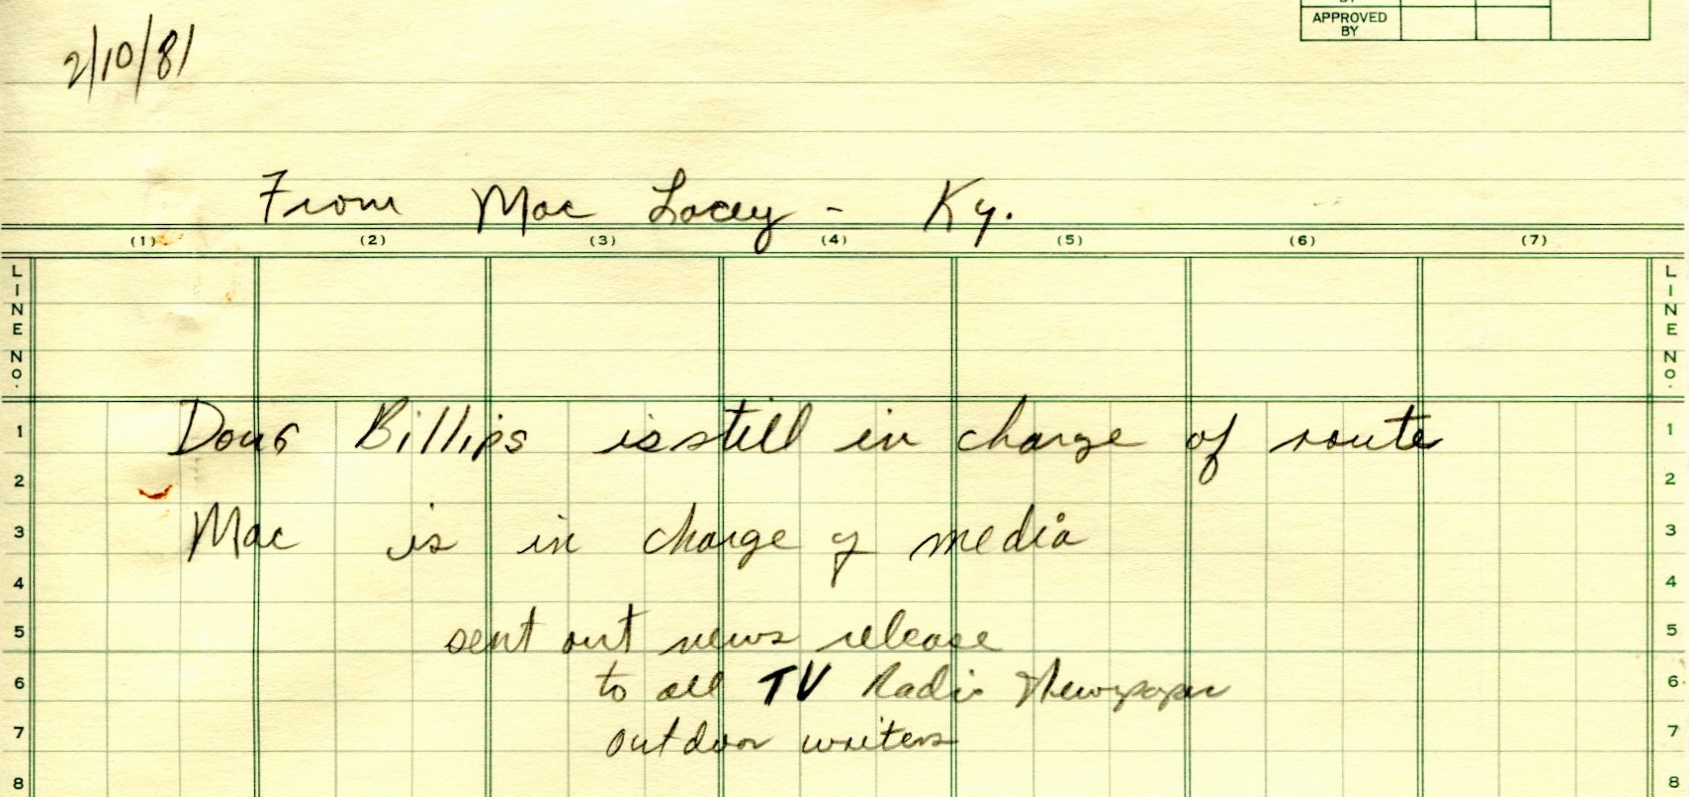 BY
APPROVED
BY
2/10/81
From Mac Lacey - Ky.
(1) (2) (3) (4) (5) (6) (7)
LINE NO. LINE NO.
1 Doug Billips is still in charge of route 1
2 2
3 Mac is in charge of media 3
4 4
5 sent out news release 5
6 to all TV Radio Newspaper 6
7 outdoor writers 7
8 8